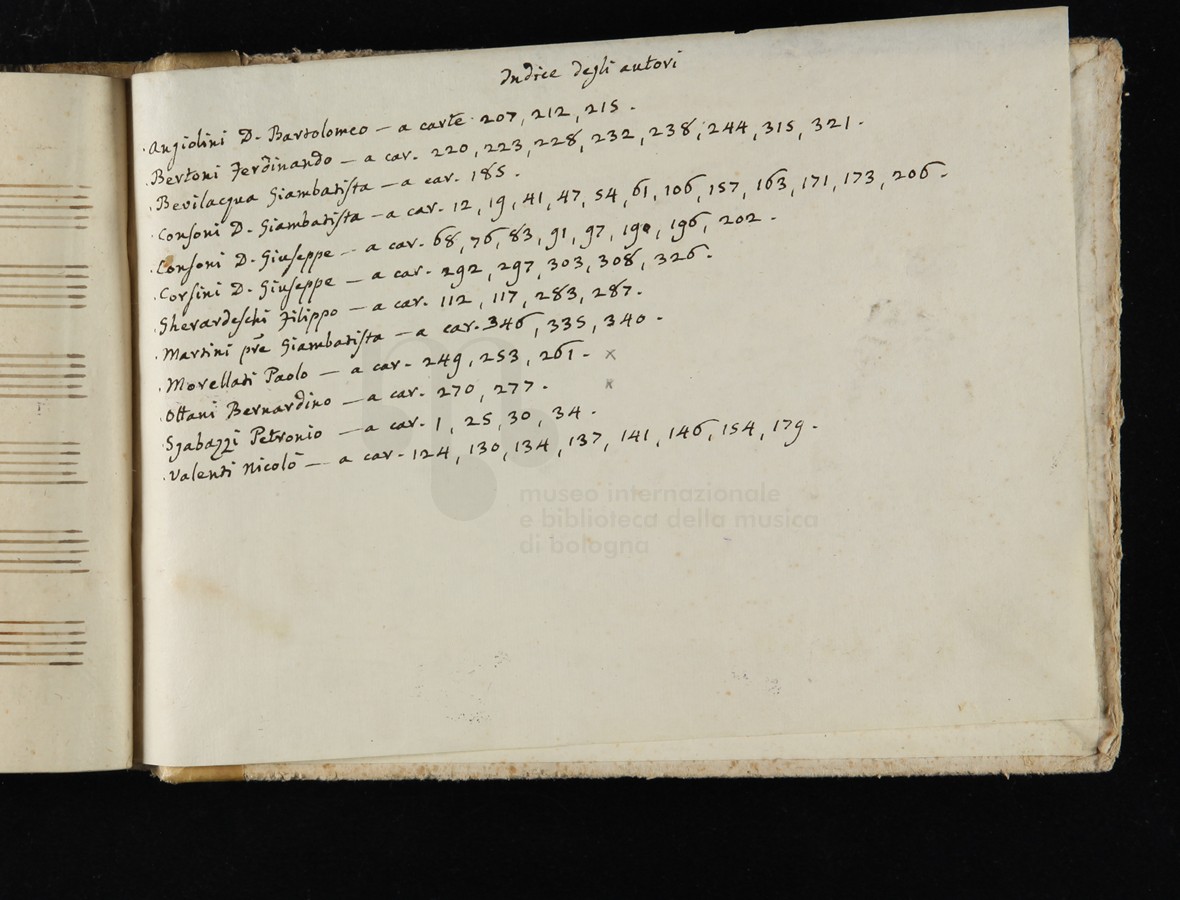 Indice degli autori
Angiolini D. Bartolomeo — a carte 207, 212, 215.
Bertoni Ferdinando — a car. 220, 223, 228, 232, 238, 244, 315, 321.
Bevilacqua Giambatista — a car. 185.
Consoni D. Giambatista — a car. 12, 19, 41, 47, 54, 61, 106, 157, 163, 171, 173, 206.
Consoni D. Giuseppe — a car. 68, 76, 83, 91, 97, 190, 196, 202.
Corsini D. Giuseppe — a car. 292, 297, 303, 308, 326.
Gherardeschi Filippo — a car. 112, 117, 283, 287.
Martini pre Giambatista — a car. 346, 335, 340.
Morellati Paolo — a car. 249, 253, 261. x
Ottani Bernardino — a car. 270, 277. x
Sgabazzi Petronio — a car. 1, 25, 30, 34.
Valenti Nicolò — a car. 124, 130, 134, 137, 141, 146, 154, 179.
museo internazionale
e biblioteca della musica
di bologna